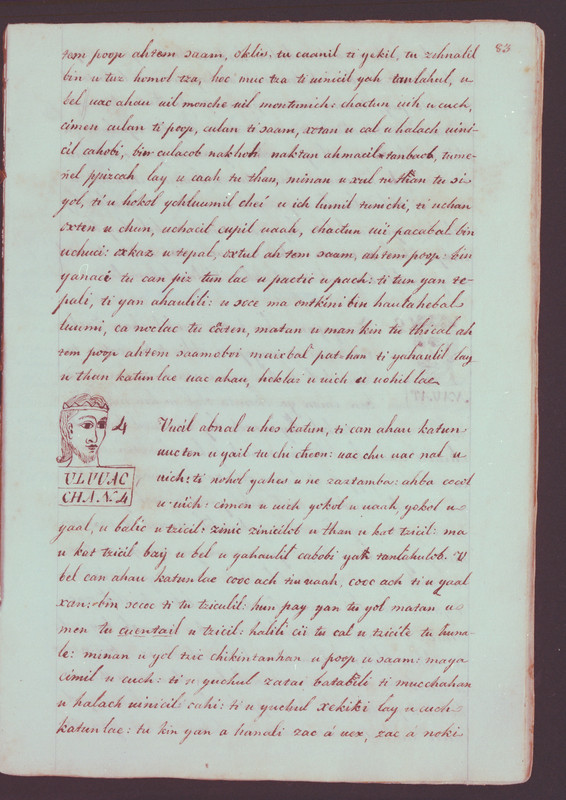 83
tem poop ah tem saam, oklis, tu caanil ti yekil, tu zihnalil
bin u tuz homol tza, hoc muc tza ti uinicil yah tanlahul, u
bel uac ahau uil monche uil montunich: chactun uih u cuch,
cimen culan ti poop, culan ti saam, xotan u cal u halach uini-
cil cahobi, bin culacob nak tan ahmacil tume-
nel ppizcah lay u caah tu than, minan u xul u than tu si
yol, ti u hokol ych luumil cheé u ich lumil tunichi, ti uchan
oxten u chun, uchacil cupil uaah, chactun uii pacabal bin
uchuci: oxkaz u tepal, oxtul ah tem saam, ah tem poop: bin
yanaci tu can piz tun lac u pactic u pach: ti tun yan te-
pali, ti yan ahaulili: u sece ma ontkini bin haulahebal
luumi, ca noclac tu caten, matan u man kin tu thical ah
tem poop ah tem saam maixbal pat-han ti yahaulil lay
u than katun lae uac ahau, heklai u uich u uohil lae
4 Vucil abnal u hes katun, ti can ahau katun
uucten u yail tu chi cheen: uac chu uac nal u
uich: ti nohol yahes u ne zaztamba: ahba cocol
u uich: cimen u uich yokol u uaah, yokol u
VLVUAC
CHAN. 4
yaal, u balic u tzicil: zinic zinicilob u than u kat tzicil: ma
u kat tzicil baij u bel u yahaulil cabobi yah tantahulob. V
bel can ahau katun lae cooc ach tiu uaah, cooc ach ti u yaal
xan: bin secec ti tu tziculil: hun pay yan tu yol matan u
men tu cuentail u tzicil: halili cii tu cal u tzicile tu huna-
le: minan u yol tzic chikintanhan u poop u saam: maya
cimil u cuch: ti u yuchul zatai batabili ti mucchahan
u halach uinicil cahi: ti u yuchul xekikï lay u cuch
katun lae: tu kin yan a hanali zac á uex, zac á noki